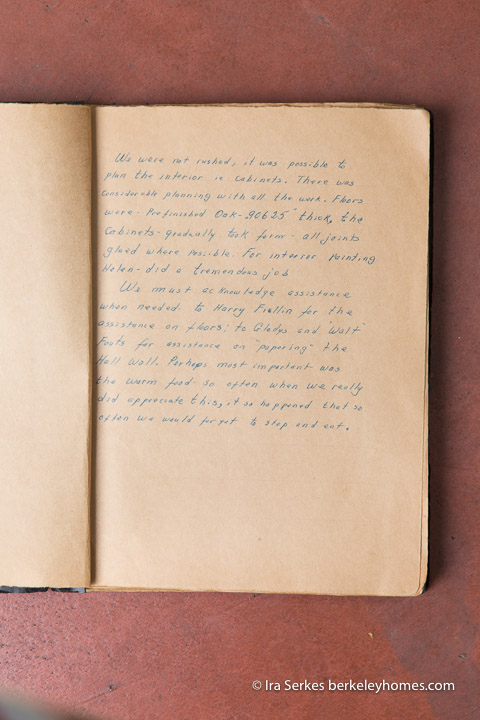 We were not rushed, it was possible to
plan the interior ie cabinets. There was
considerable planning with all the work. Floors
were - Prefinished Oak - thick, the
Cabinets - gradually took form - all joints
glued where possible. For interior painting
Helen - did a tremendous job
We must acknowledge assistance
when needed to Harry for the
assistance on floors; to Gladys and "Walt"
Foots for assistance on "papering" the
Hall Wall. Perhaps most important was
the warm food so often when we really
did appreciate this, it so happened that so
often we would forget to stop and eat.
© Ira Serkes berkeleyhomes.com